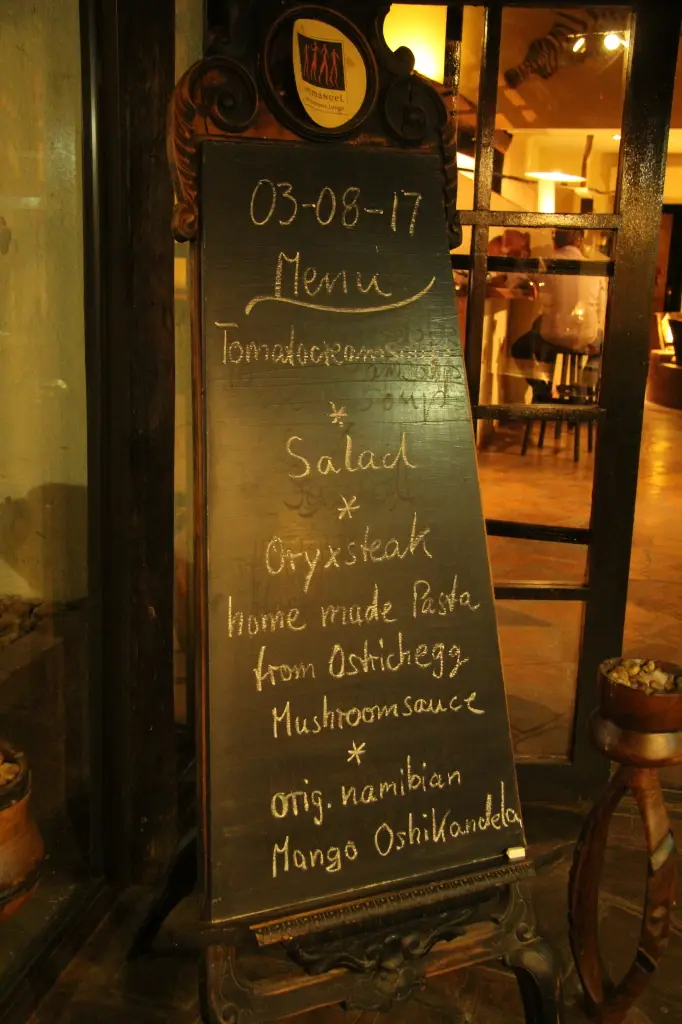 MANUEL
03-08-17
Menu
Tomatocreamsoup
*
Salad
*
Oryxsteak
home made Pasta
from Ostrichegg
Mushroomsauce
*
orig. namibian
Mango Oshikandela